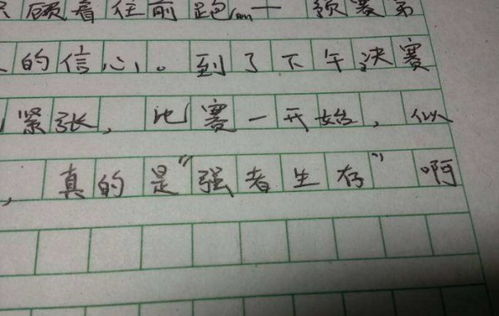 顾着往前跑……预赛第
的信心。到了下午决赛
紧张,比赛一开始,似
,真的是“强者生存”啊